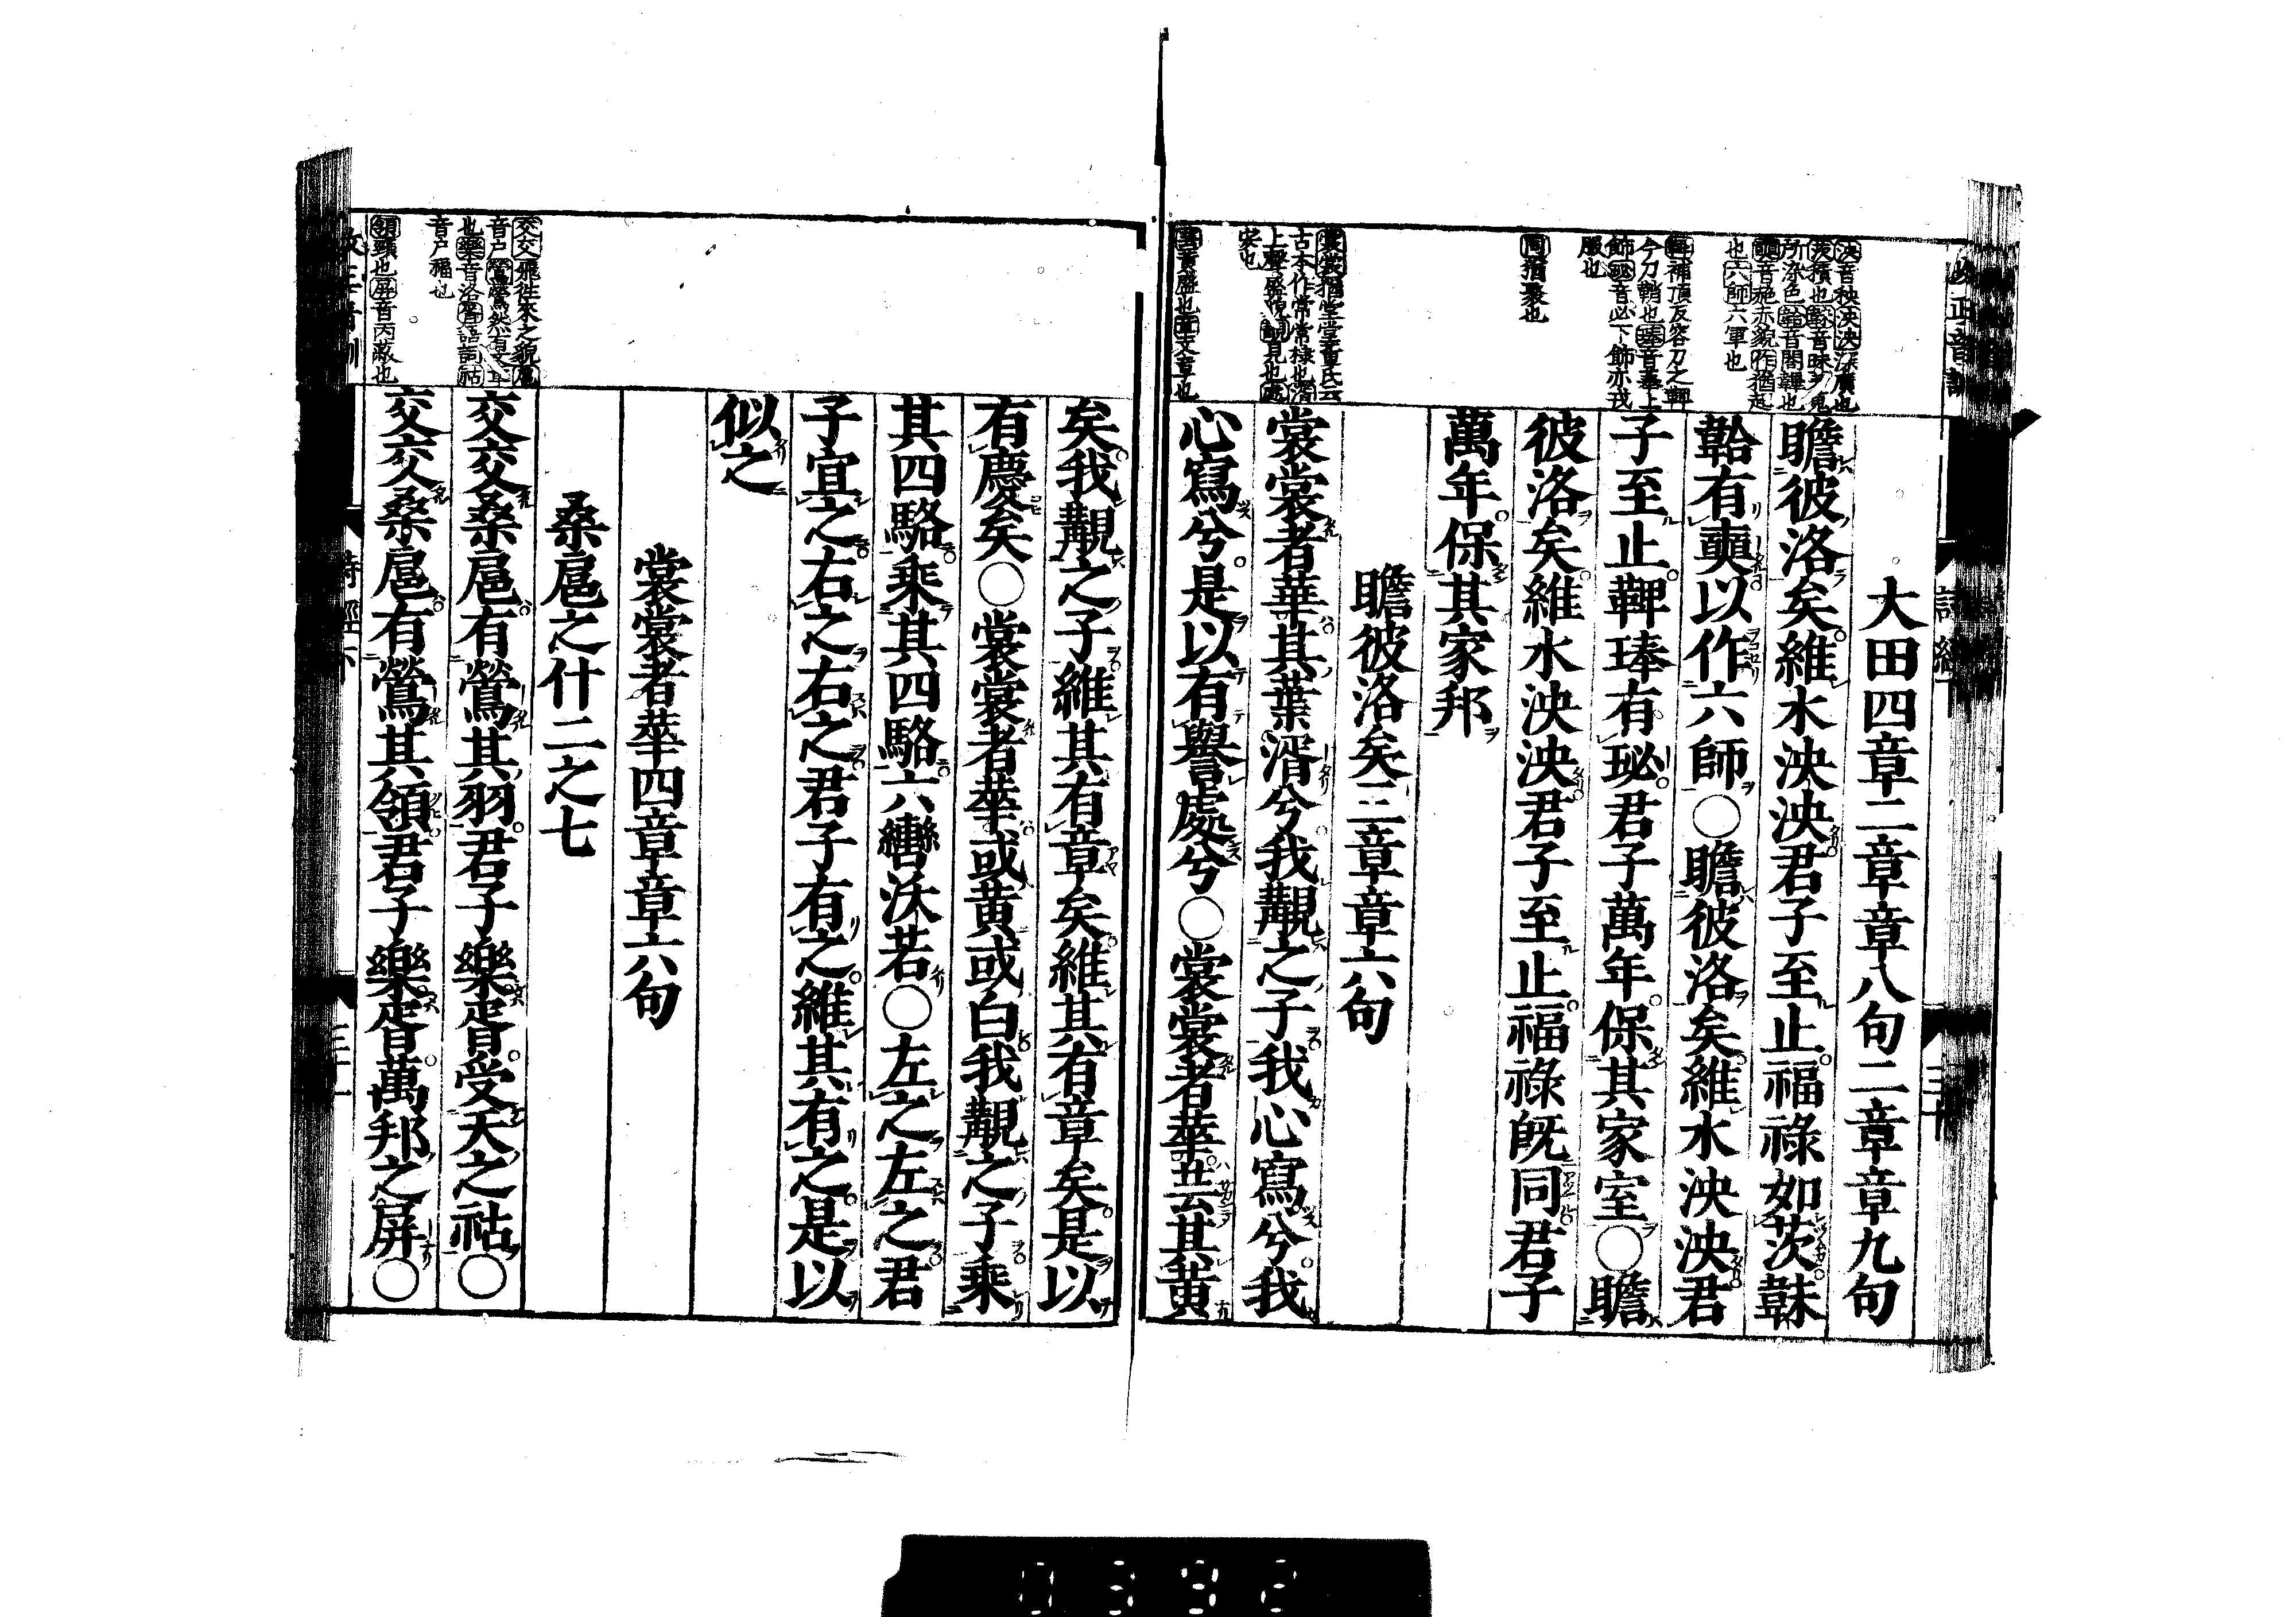 大田四章二章章八句二章章九句
瞻彼洛矣維水泱泱君子至止福祿如茨韎
韐有奭以作六師○瞻彼洛矣維水泱泱君
子至止鞞琫有珌君子萬年保其家室○瞻
彼洛矣維水泱泱君子至止福祿既同君子
萬年保其家邦
瞻彼洛矣三章章六句
裳裳者華其葉湑兮我覯之子我心寫兮我
心寫兮是以有譽處兮○裳裳者華芸其黃
泱音秧泱泱深廣也
茨積也韎音昧茅蒐
所染色韐音閤韠也
奭音絶赤貌作猶起
也六師六軍也
鞞補頂反容刀之鞞
今刀鞘也琫音菶上
飾珌音必下飾亦戎
服也
同猶聚也
裳裳猶堂堂董氏云
古本作常常棣也湑
上聲盛貌覯見也處
安也
芸黃盛也章文章也
矣我覯之子維其有章矣維其有章矣是以
有慶矣○裳裳者華或黃或白我覯之子乘
其四駱乘其四駱六轡沃若○左之左之君
子宜之右之右之君子有之維其有之是以
似之
裳裳者華四章章六句
桑扈之什二之七
交交桑扈有鶯其羽君子樂胥受天之祜○
交交桑扈有鶯其領君子樂胥萬邦之屏○
交交飛往來之貌扈
音户鶯鶯然有文章
也樂音洛胥語詞祜
音户福也
領頸也屏音丙蔽也
詩經下
三十一
0392